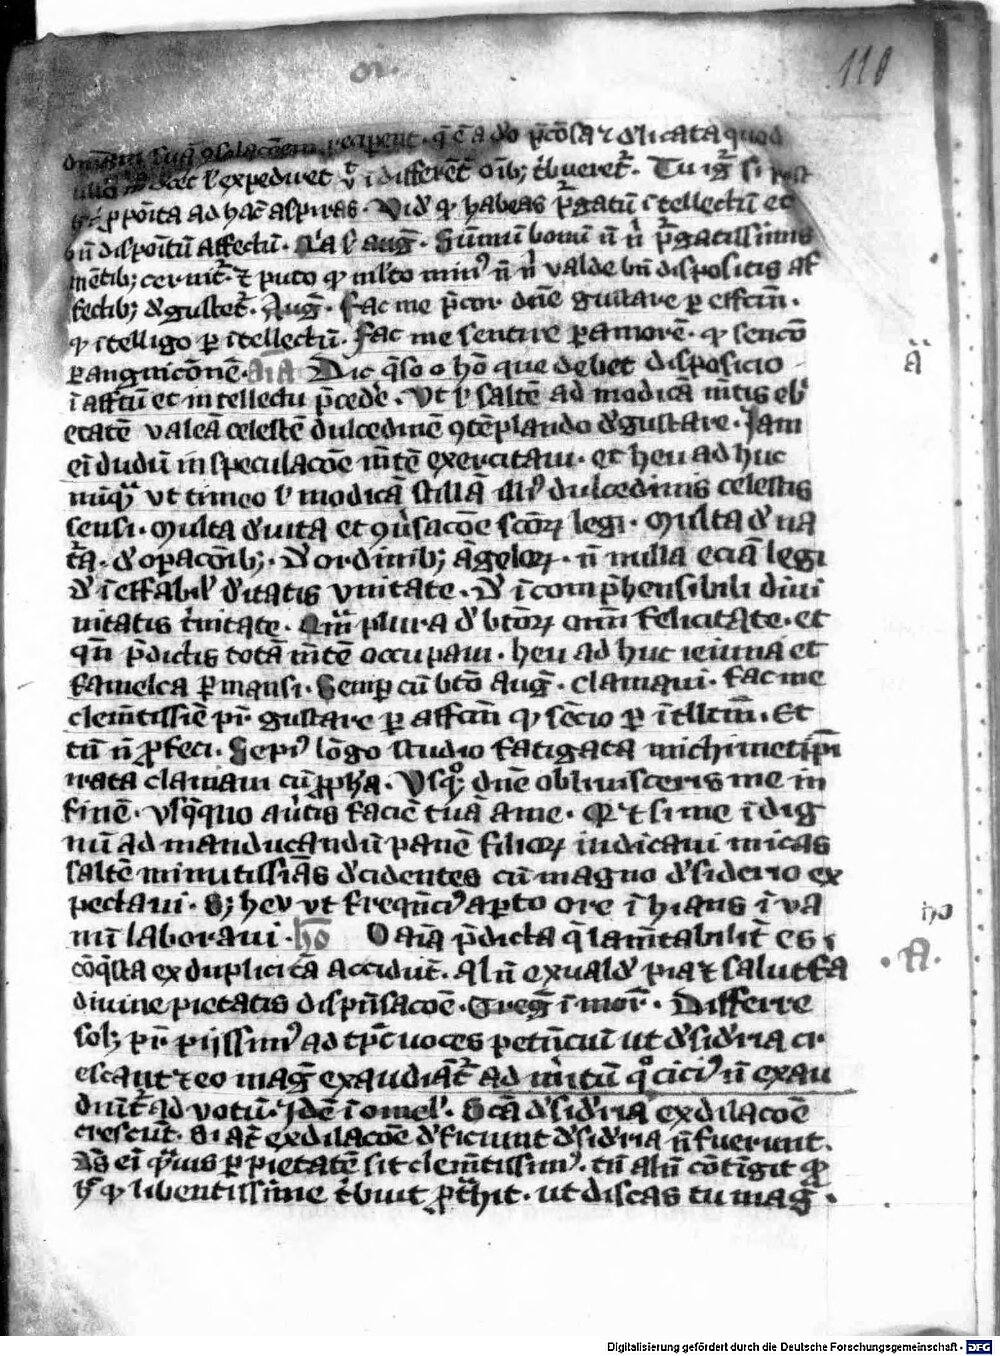 110
recipient · q̄ ē adō p̄cōsa ⁊ dʼlicata quod
lʼ expediret ī differēt oīb; t̄bueret᷑ · Tu ig̃ si
ꝓpoīta ad hāc aspiras · Vidʼ qꝫ habeas p᷑gatū ītellectū et
bn̄ dispoītū affectū · aug̃ · Sūmū bonū n̄ nʼ p᷑gatissimis
mētib; cernit᷑ · ⁊ puto qꝫ mlʼto minꝰ n̄ nʼ valde bn̄ dispositis af
fectib; dʼgustet᷑ · Aug̃ · Fac me p̄cor dn̄e gustare ꝑ effcm̄ ·
qꝫ ītelligo ꝑ ītellectū · Fac me sentire ꝑ amorē · qꝫ sencō
ꝑ angnicōnē · aīa Dic q̄so o hō que debet disposicio
ī affcū et intellectu p̄cedʼe · Vt lʼ saltē ad modicā mt̄is ebʼ
etatē valeā celestē dulcedinē ꝯtēplando dʼgustare · Jam
ei dudū in speculacōe mt̄ē exercitavi · et heu ad huc
nūqᷓ vt timeo lʼ modicā stillā illiꝰ dulcedinis celestis
sensi · Multa dʼ vita et ꝯv̓sacōe scōꝝ legi · Multa dʼ na
t᷑a · dʼ oꝑacōib; · Dʼ ordinib; āgeloꝝ · n̄ nulla eciā legi
dʼ īeffabilʼ dʼitatis vnitate · Dʼ īcomp̄hensibili divi
nitatis t̓nitate · Qm̄ plura dʼ btōꝝ om̄i felicitate · et
qn̄ p̄dictis totā mt̄ē occupavi · heu ad huc ieiuna et
famelca ꝑmansi · Semꝑ cū btō Aug̃ · clamavi · Fac me
clem̄tissiē pr̄ gustare ꝑ affcm̄ qꝫ sēcio ꝑ ītllcm̄ · Et
tn̄ n̄ ꝓfeci · Sepiꝰ lōgo studio fatigata michimet ip̄i
irata clamavi cū ꝓpha · Vsqꝫ° dn̄e oblivisceris me in
finē · vsq̄quo av̓tis faciē tuā a me · ⁊ si me īdig
nū ad manducandū panē filioꝝ iudicavi micas
saltē minutissīās dʼcidentes cū magno dʼsiderio ex
pectavi · S; hev vt freqn̄ciꝰ aꝑto ore īhians ī va
nū laboravi · hō O aīa p̄dicta q̄ lam̄tabilit᷑ es
cōq̄sta ex duplici cā accidūt · Al̓n̄ ex valdʼ pia ⁊ salutʼfa
divine pietatis dispn̄sacōe · Greg̃ ī mor̄ · Differre
sol; pr̄ pijssimꝰ ad tp̄c voces petn̄ciū ut dʼsidʼria cr
escant ⁊ eo mag̃ exaudiāt᷑ ad m̓itū q° ciciꝰ n̄ exau
diūt᷑ ad votū · Jdē ī omelʼ · Scā dʼsidʼria ex dilacōe
crescūt · Si at᷑ ex dilacōe dʼficiunt dʼsidʼria n̄ fuerunt ·
Dʼs ei qᷓvis ꝑ pietatē sit clem̄tissimꝰ · tn̄ al̓n̄ cōtīgit
qꝫ libentissime t̓buit ꝓt᷑hit · ut discas tu mag̃ ·
aᷓ
hō
· A ·
Digitalisierung gefördert durch die Deutsche Forschungsgemeinschaft - DFG